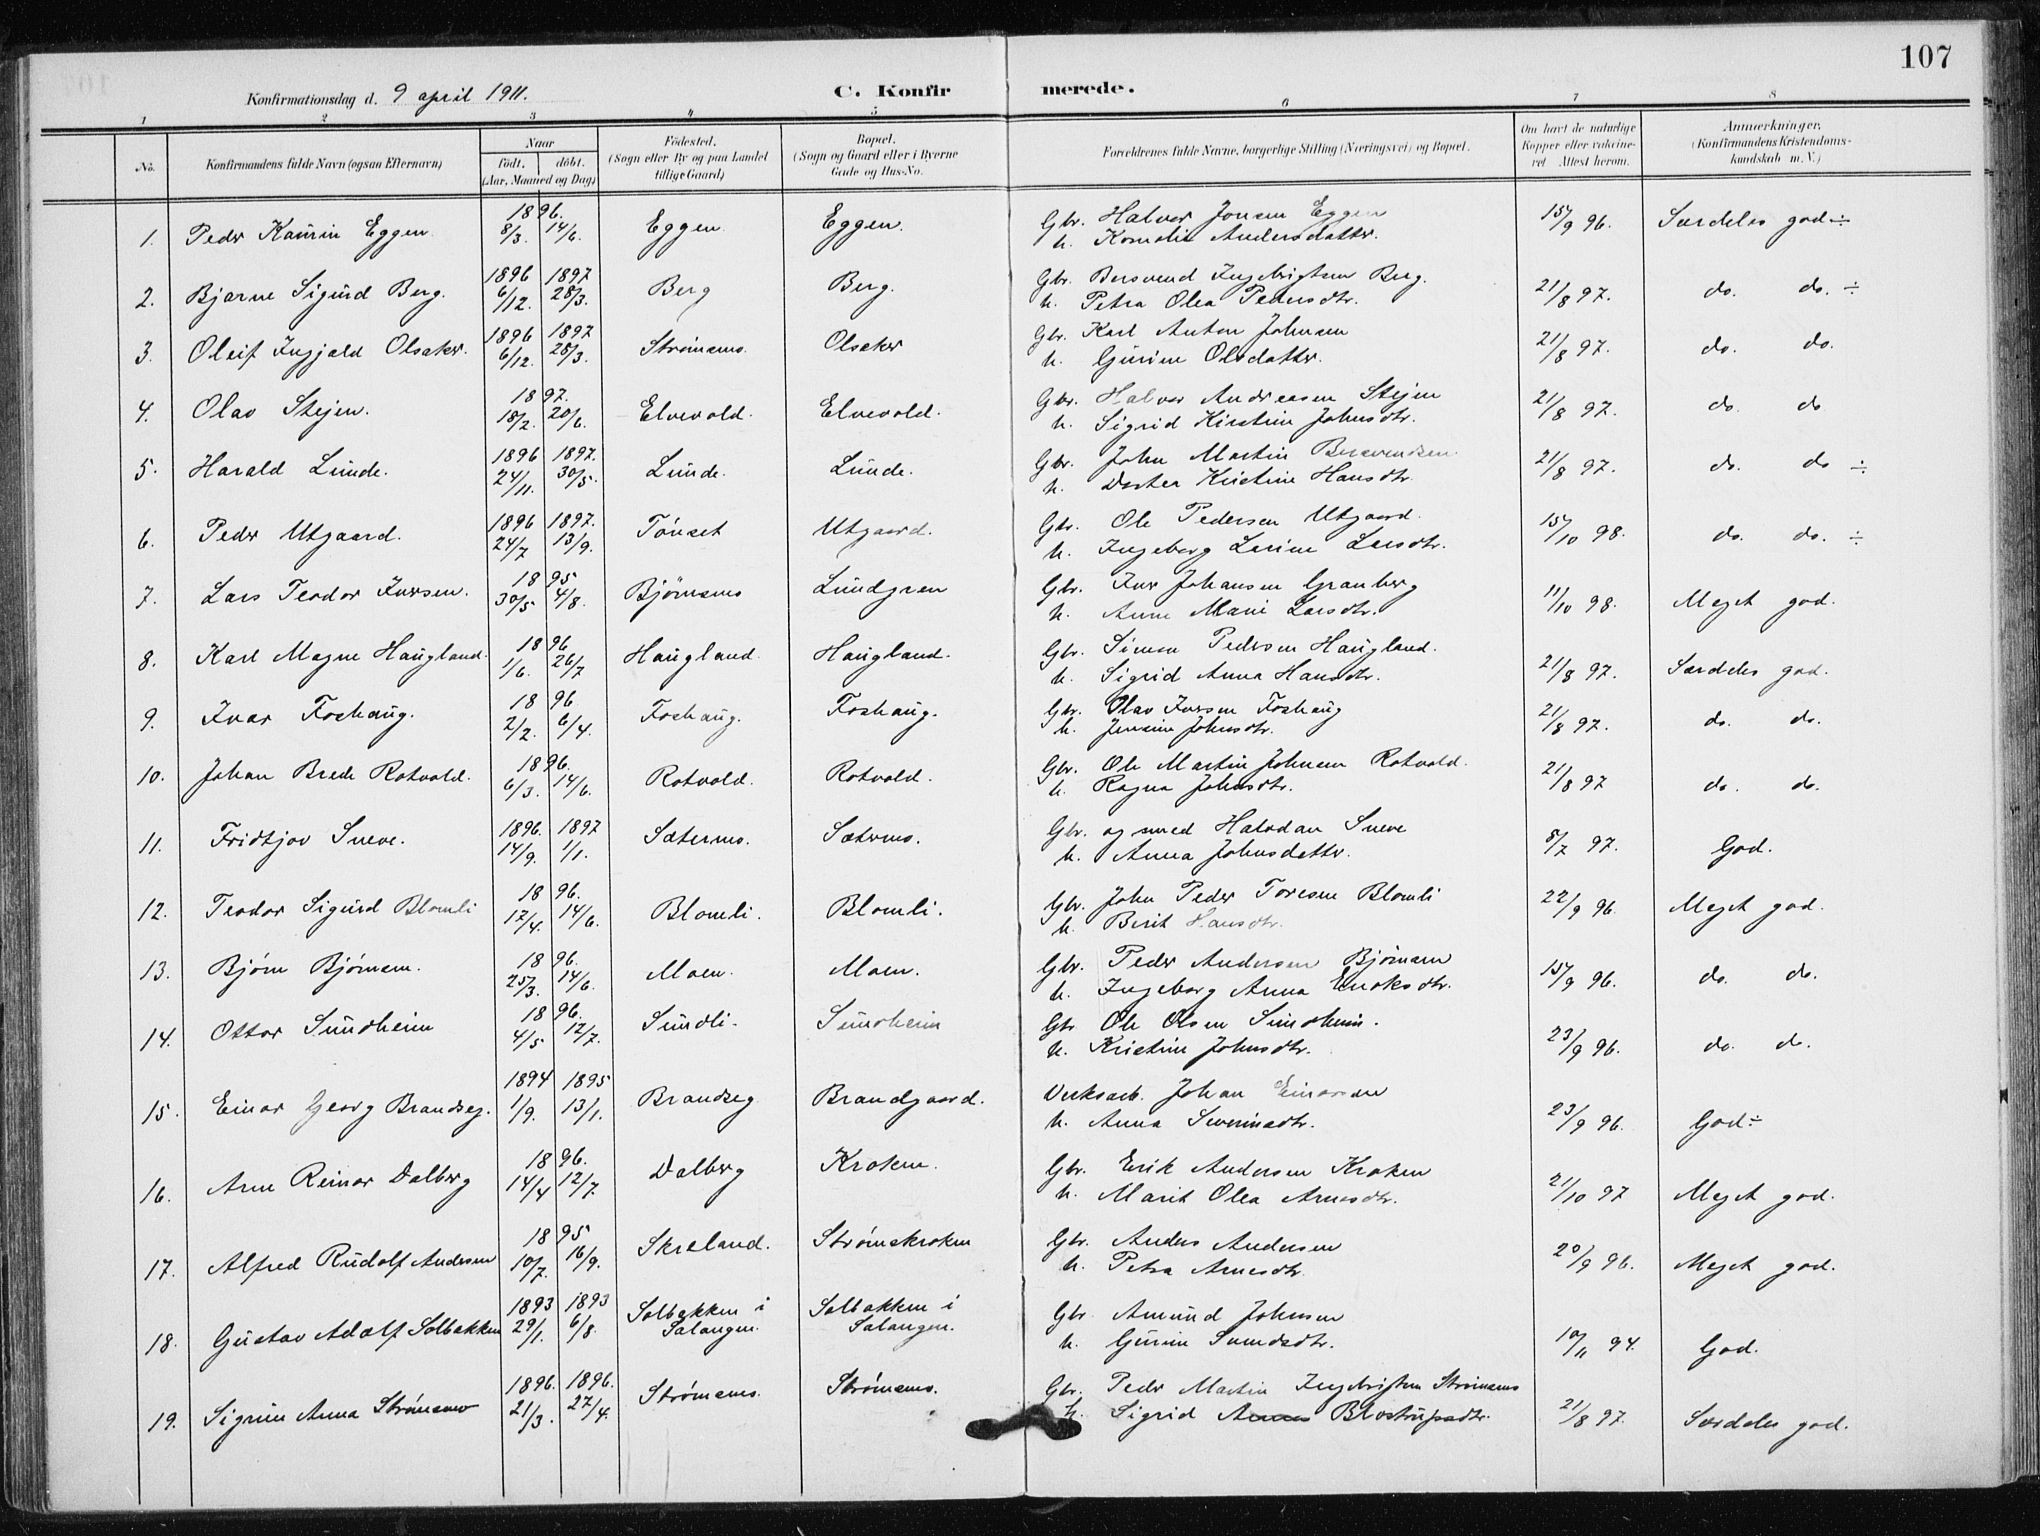 107
Konfirmationsdag d. 9 april 1911. C. Konfir merede.
1 2 3 4 5 6 7 8
No. Konfirmandens fulde Navn (ogsaa Efternavn) Naar født. døbt. (Aar, Maaned og Dag) Fødested. (Sogn eller By og paa Landet tillige Gaard) Bopæl. (Sogn og Gaard eller i Byerne Gade og Hus-No. Forældrenes fulde Navne, borgerlige Stilling (Næringsvei) og Bopæl. Om havt de naturlige Kopper eller vaksineret. Attest herom. Anmærkninger. (Konfirmandens Kristendomskundskab m. V.)
1. Peder Kaurin Eggen. 1896. 8/3. 14/6. Eggen Eggen. Gbr. Halvor Jonsen Eggen 15/9 96. Særdeles god ÷
h. Kornelie Andersdatter.
2. Bjarne Sigurd Berg. 1896 6/12. 1897 28/3. Berg Berg. Gbr. Bersvend Ingebrigtsen Berg. 21/8 97. do. do. ÷
h. Petra Olea Pedersdtr.
3. Oleif Ingjald Olsaker. 1896 6/12. 1897 28/3. Strømsmo. Olsaker Gbr. Karl Anton Johnsen 21/8 97. do. do.
h. Gurine Olsdatter.
4. Olav Stejen. 1897. 18/2. 20/6. Elvevold. Elvevold. Gbr. Halvor Andreasen Stejen 21/8 97. do. do
h. Sigrid Kirstine Johnsdtr.
5. Harald Lunde. 1896 24/11. 1897. 30/5. Lunde. Lunde. Gbr. John Martin Bersvendsen. 21/8 97. do. do ÷
h. Dortea Kristine Hansdtr.
6. Peder Utgaard. 1896 24/7 1897. 13/9. Tønset Utgaard. Gbr. Ole Pedersen Utgaard. 15/10 98. do. do. ÷
h. Ingeborg Larine Larsdtr.
7. Lars Teodor Iversen. 1895 30/5 4/8. Bjørnsmo Lundgren Gbr. Iver Johansen Granberg 11/10 98. Meget god.
h. Anne Marie Larsdtr.
8. Karl Magne Haugland. 1896 1/6. 26/7 Haugland. Haugland. Gbr. Simon Pedersen Haugland.
h. Sigrid Anna Hansdtr. 21/8 97. Særdeles god.
9. Ivar Foshaug. 1896 2/2. 6/4. Foshaug. Foshaug. Gbr. Olav Iversen Foshaug 21/8 97. do. do.
h. Jensine Johnsdtr.
10. Johan Brede Rotvold. 1896. 6/3. 14/6. Rotvold. Rotvold. Gbr. Ole Martin Johnsen Rotvold. 21/8 97 do. do.
h. Ragna Johnsdtr.
11. Fridtjov Sneve. 1896. 14/9. 1897 1/1. Sætermo. Sætermo. Gbr. og smed Halvdan Sneve 8/7 97. God.
h. Anna Johnsdatter.
12. Teodor Sigurd Blomli 1896. 17/4. 14/6. Blomli. Blomli. Gbr. John Peder Toresen Blomli 22/9 96. Meget god.
h. Berit Hansdtr.
13. Bjørn Bjørnsen. 1896. 25/3. 14/6. Moen. Moen. Gbr. Peder Andersen Bjørnsen 15/9 96. do. do.
h. Ingeborg Anna Enoksdtr.
14. Ottar Sundheim 1896. 4/5 12/7. Sundli. Sundheim Gbr Ole Olsen Sundheim.
h. Kristine Johnsdtr. 23/9 96. do. do.
15. Einar Georg Brandseg. 1894 1/9. 1895 13/1. Brandseg Brandgaard. Verksarb. Johan Einarsen
h. Anna Severinsdtr. 23/9 96. God ÷
16. Arne Reinar Dalberg 1896. 14/4 12/7. Dalberg Kroken. Gbr. Erik Andersen Kroken
h. Marit Olea Arnesdtr. 21/10 97 Meget god.
17. Alfred Rudolf Andersen 1895 10/7. 16/9. Skreland. Strømskroken Gbr. Anders Andersen
h. Petra Arnesdtr. 20/9 96. Meget god.
18. Gustav Adolf Solbakken 1893 29/1. 1893 6/8. Solbakken i Salangen. Solbakken i Salangen. Gbr. Amund Johnsen
h. Gurine Svendsdtr. 10/11 94. God.
19. Sigrun Anna Strømsmo 1896. 21/3. 1896. 27/4. Strømsmo. Strømsmo. Gbr. Peder Martin Ingebrigtsen Strømsmo
h. Sigrid Blostrupsdtr. 21/8 97. Særdeles god.